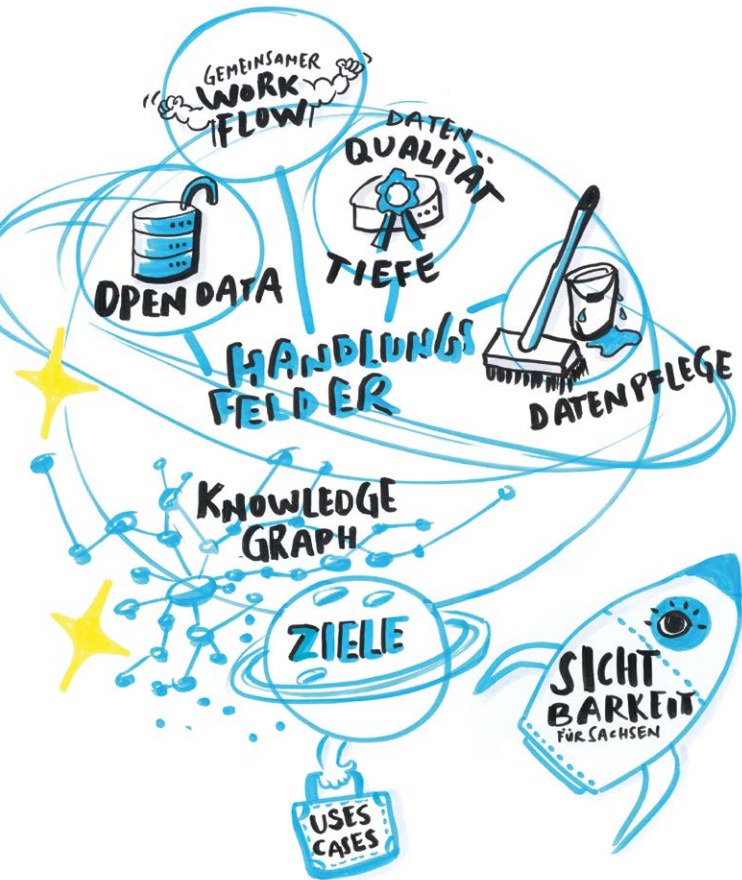 GEMEINSAMER
WORK
FLOW
DATEN
QUALITÄT
TIEFE
OPEN DATA
HANDLUNGS
FELDER
DATENPFLEGE
KNOWLEDGE
GRAPH
ZIELE
SICHT
BARKEIT
FÜR SACHSEN
USES
CASES